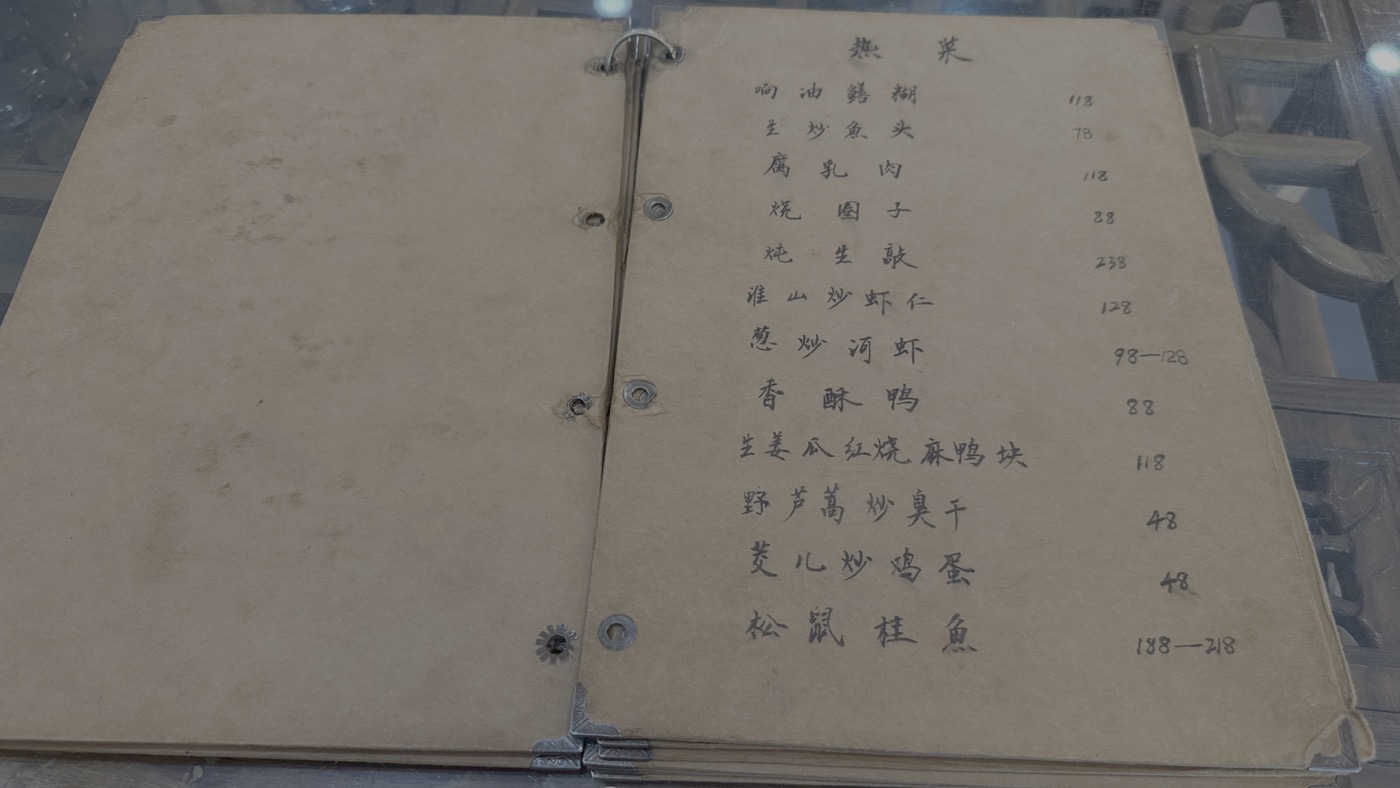 热菜
响油鳝糊 118
生炒魚头 78
腐乳肉 118
烧圈子 88
炖生敲 238
淮山炒虾仁 128
葱炒河虾 98—128
香酥鸭 88
生姜瓜红烧麻鸭块 118
野芦蒿炒臭干 48
茭儿炒鸡蛋 48
松鼠桂魚 188—218